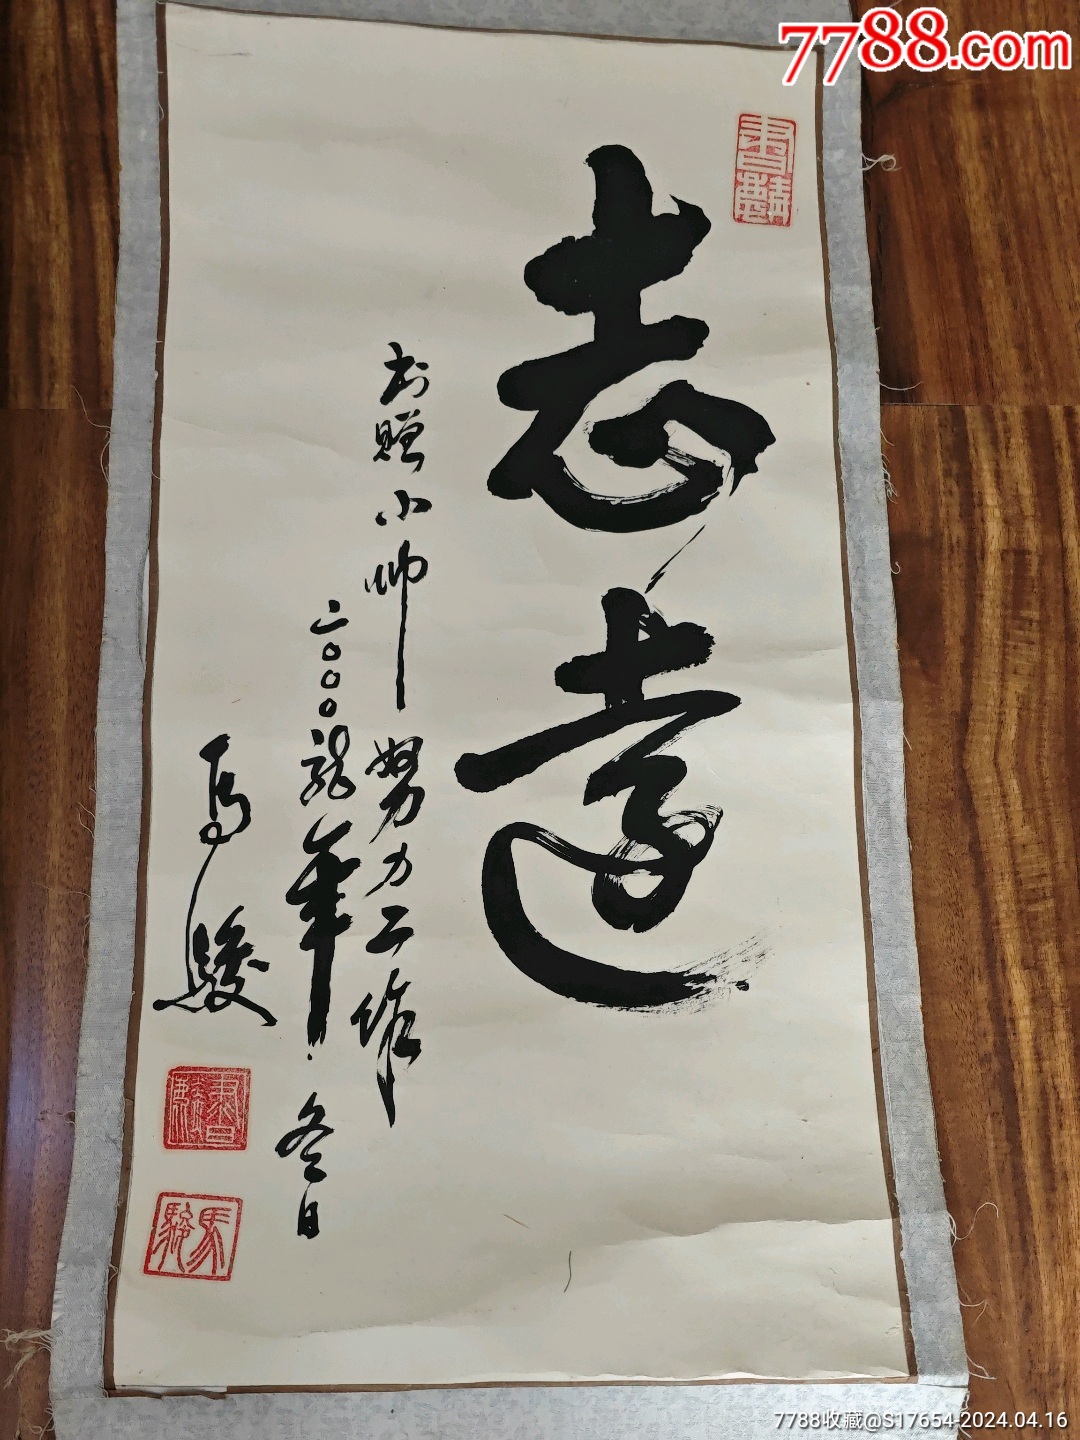 7788.com
志远
书赠小帅努力工作
二000龙年冬日
马骏
馬駿
7788收藏@S17654-2024.04.16